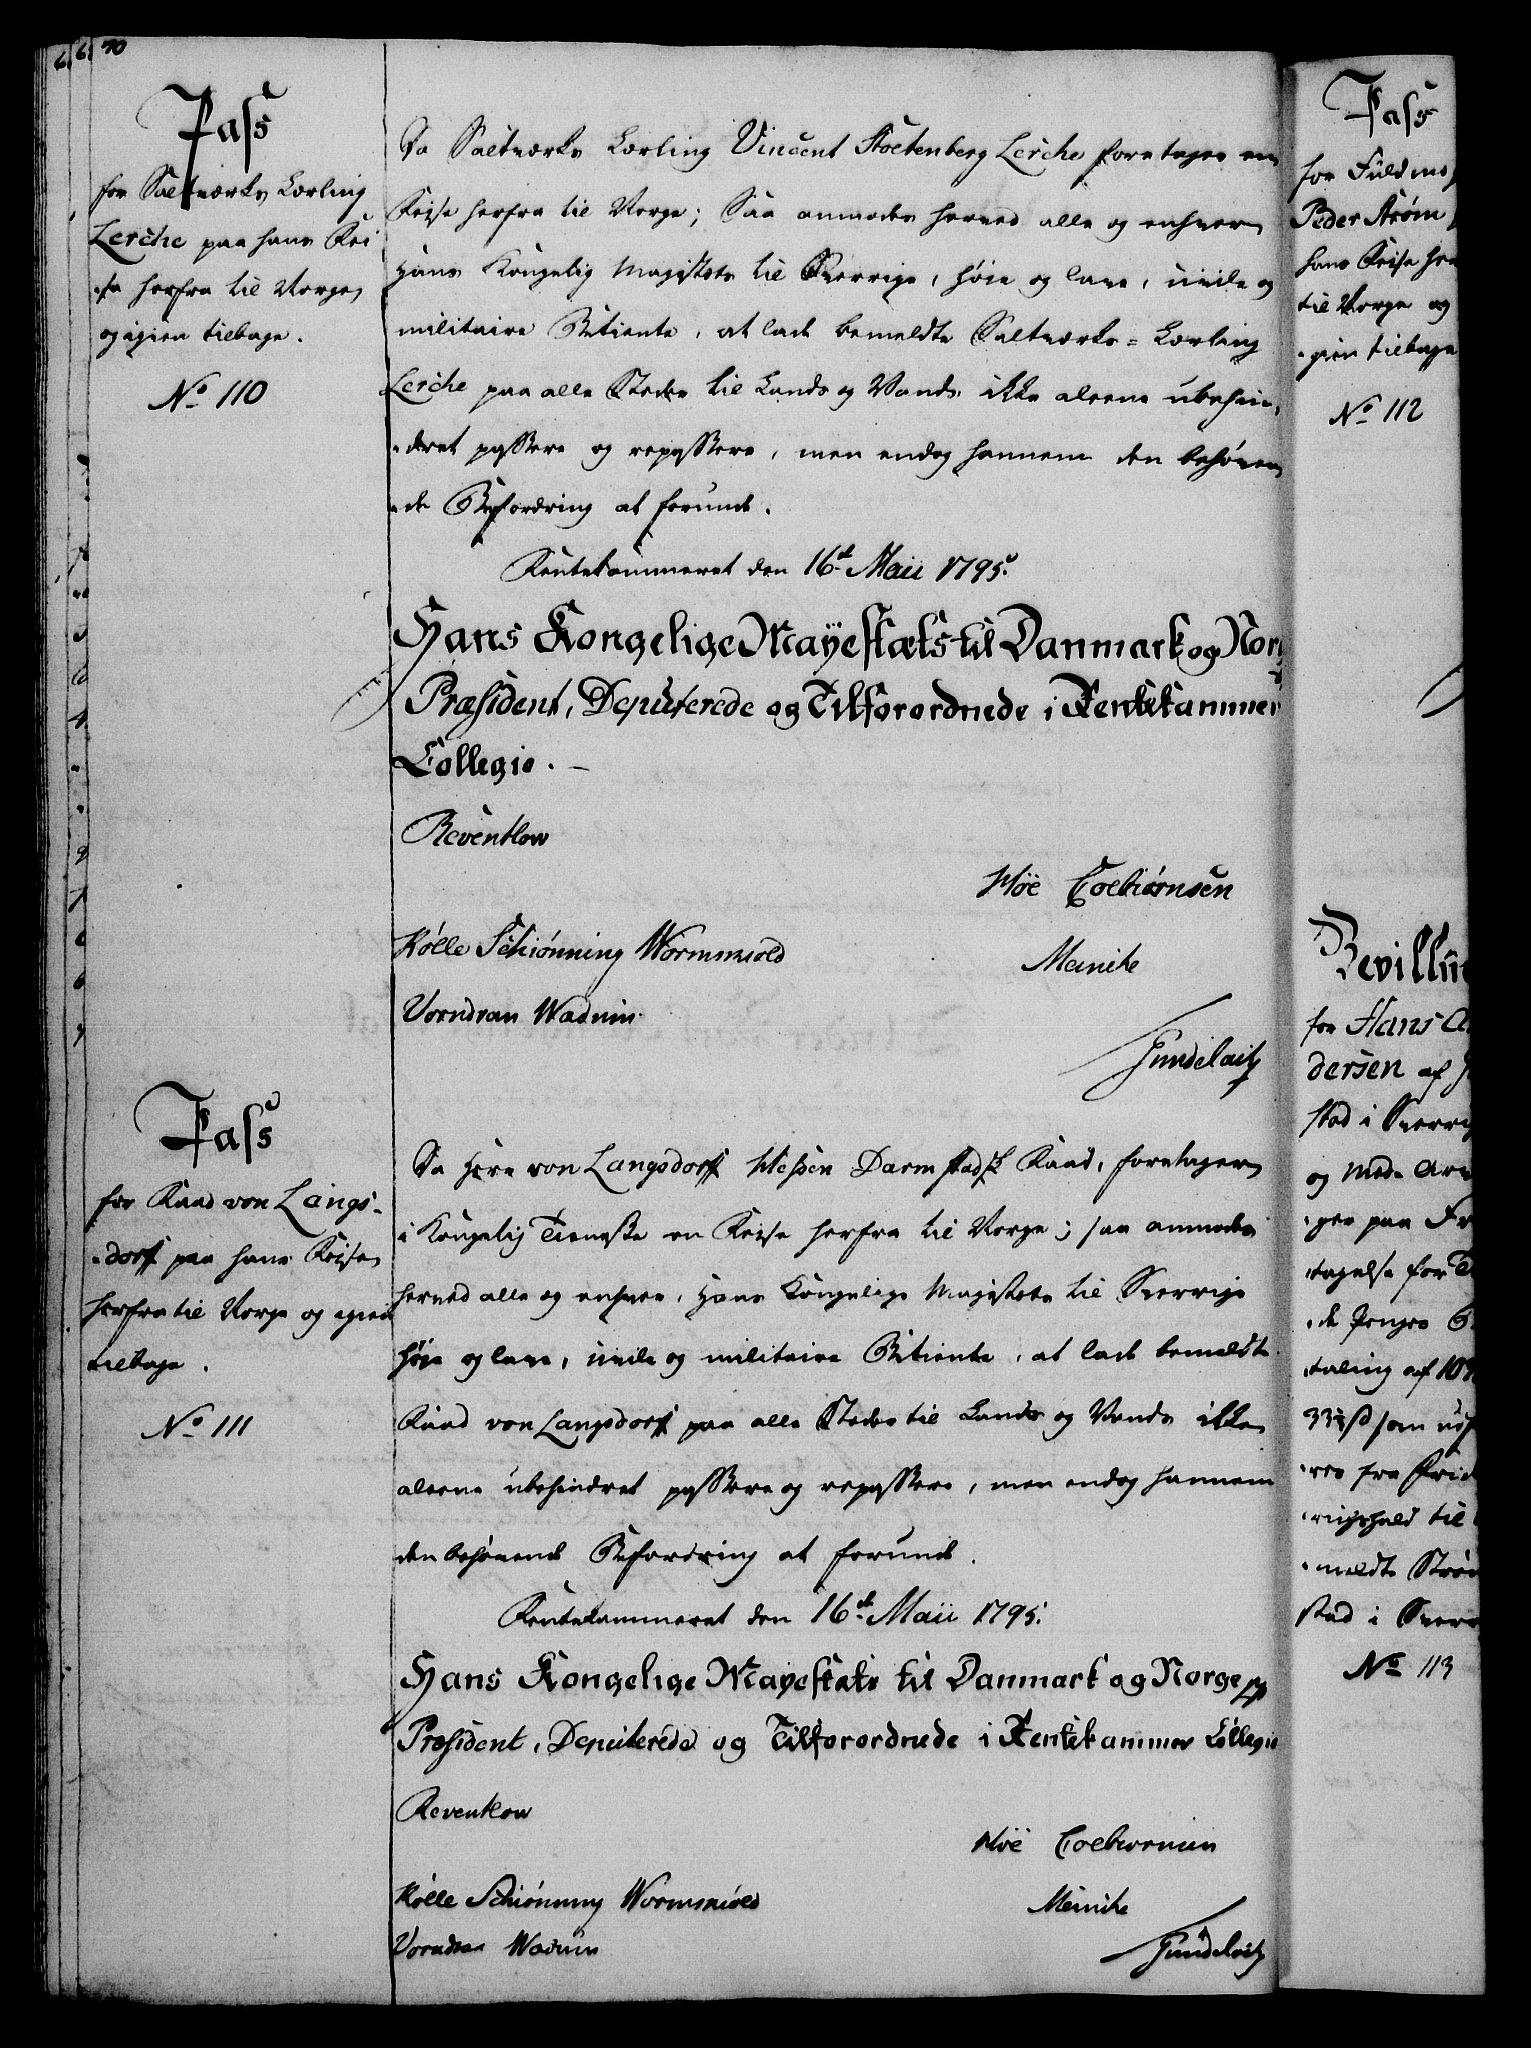 70
Pass
for Saltværks Lærling
Lerche paa hans Rei
-se herfra til Norge,
og igien tilbage.
No 110
Da Saltværks Lærling Vincent Stoltenberg Lerche foretager en
Reise herfra til Norge; Saa anmodes herved alle og enhver,
Hans Kongelig Majestets til Sverrige, høie og lave, civile og
militaire Betiente, at lade bemeldte Saltværks-Lærling
Lerche paa alle Steder til Lands og Vands ikke aleene ubehin,
-dret passere og repassere, men endog hannem den behøven
-de Befordring at forunde.
Rentekammeret den 16de Maii 1795.
Hans Kongelige Mayestæts til Danmark og Norg
Præsident, Deputerede og Tilforordnede i Rentekammer
Collegio.
Reventlow
Høe Colbiørnsen
Kølle Schiønning Wormskiold
Meinike
Vorndran Wadum
Gundelach
Pass
for Raad von Langs-
-dorff paa hans Reise,
herfra til Norge og igien
tilbage.
No 111
Da Herr von Langsdorff Hessen Darmstadsk Raad, foretager,
i Kongelig Tieneste en Reise herfra til Norge; saa anmodes
herved alle og enhver, Hans Kongelige Majestets til Sverrige
høie og lave, civile og militaire Betiente, at lade bemeldte
Raad von Langsdorff paa alle Steder til Lands og Vands ikke,
aleene ubehindret passere og repassere, men endog hannem
den behøvende Befordring at forunde.
Rentekammeret den 16de Maii 1795.
Hans Kongelige Mayestets til Danmark og Norge pp
Præsident, Deputerede og Tilforordnede i Rentekammer Collegio
Reventlow
Høe Colbiørnsen
Kølle Schiønning Wormskiold
Meinike
Vorndran Wadum
Gundelach
Pass
for Fuldm
Peder Strøm
hans Reise her
til Norge og
-gien tilbage
No 112
Bevillin
for Hans An
dersen af
stad i Sverri
og Mads
-ger paa Fr
-tagelse for
-de Penges
-taling af 10
33⅓ ß som
-res fra Frid
-richshald til
-meldte Strøm
stad i Sverr
No 113